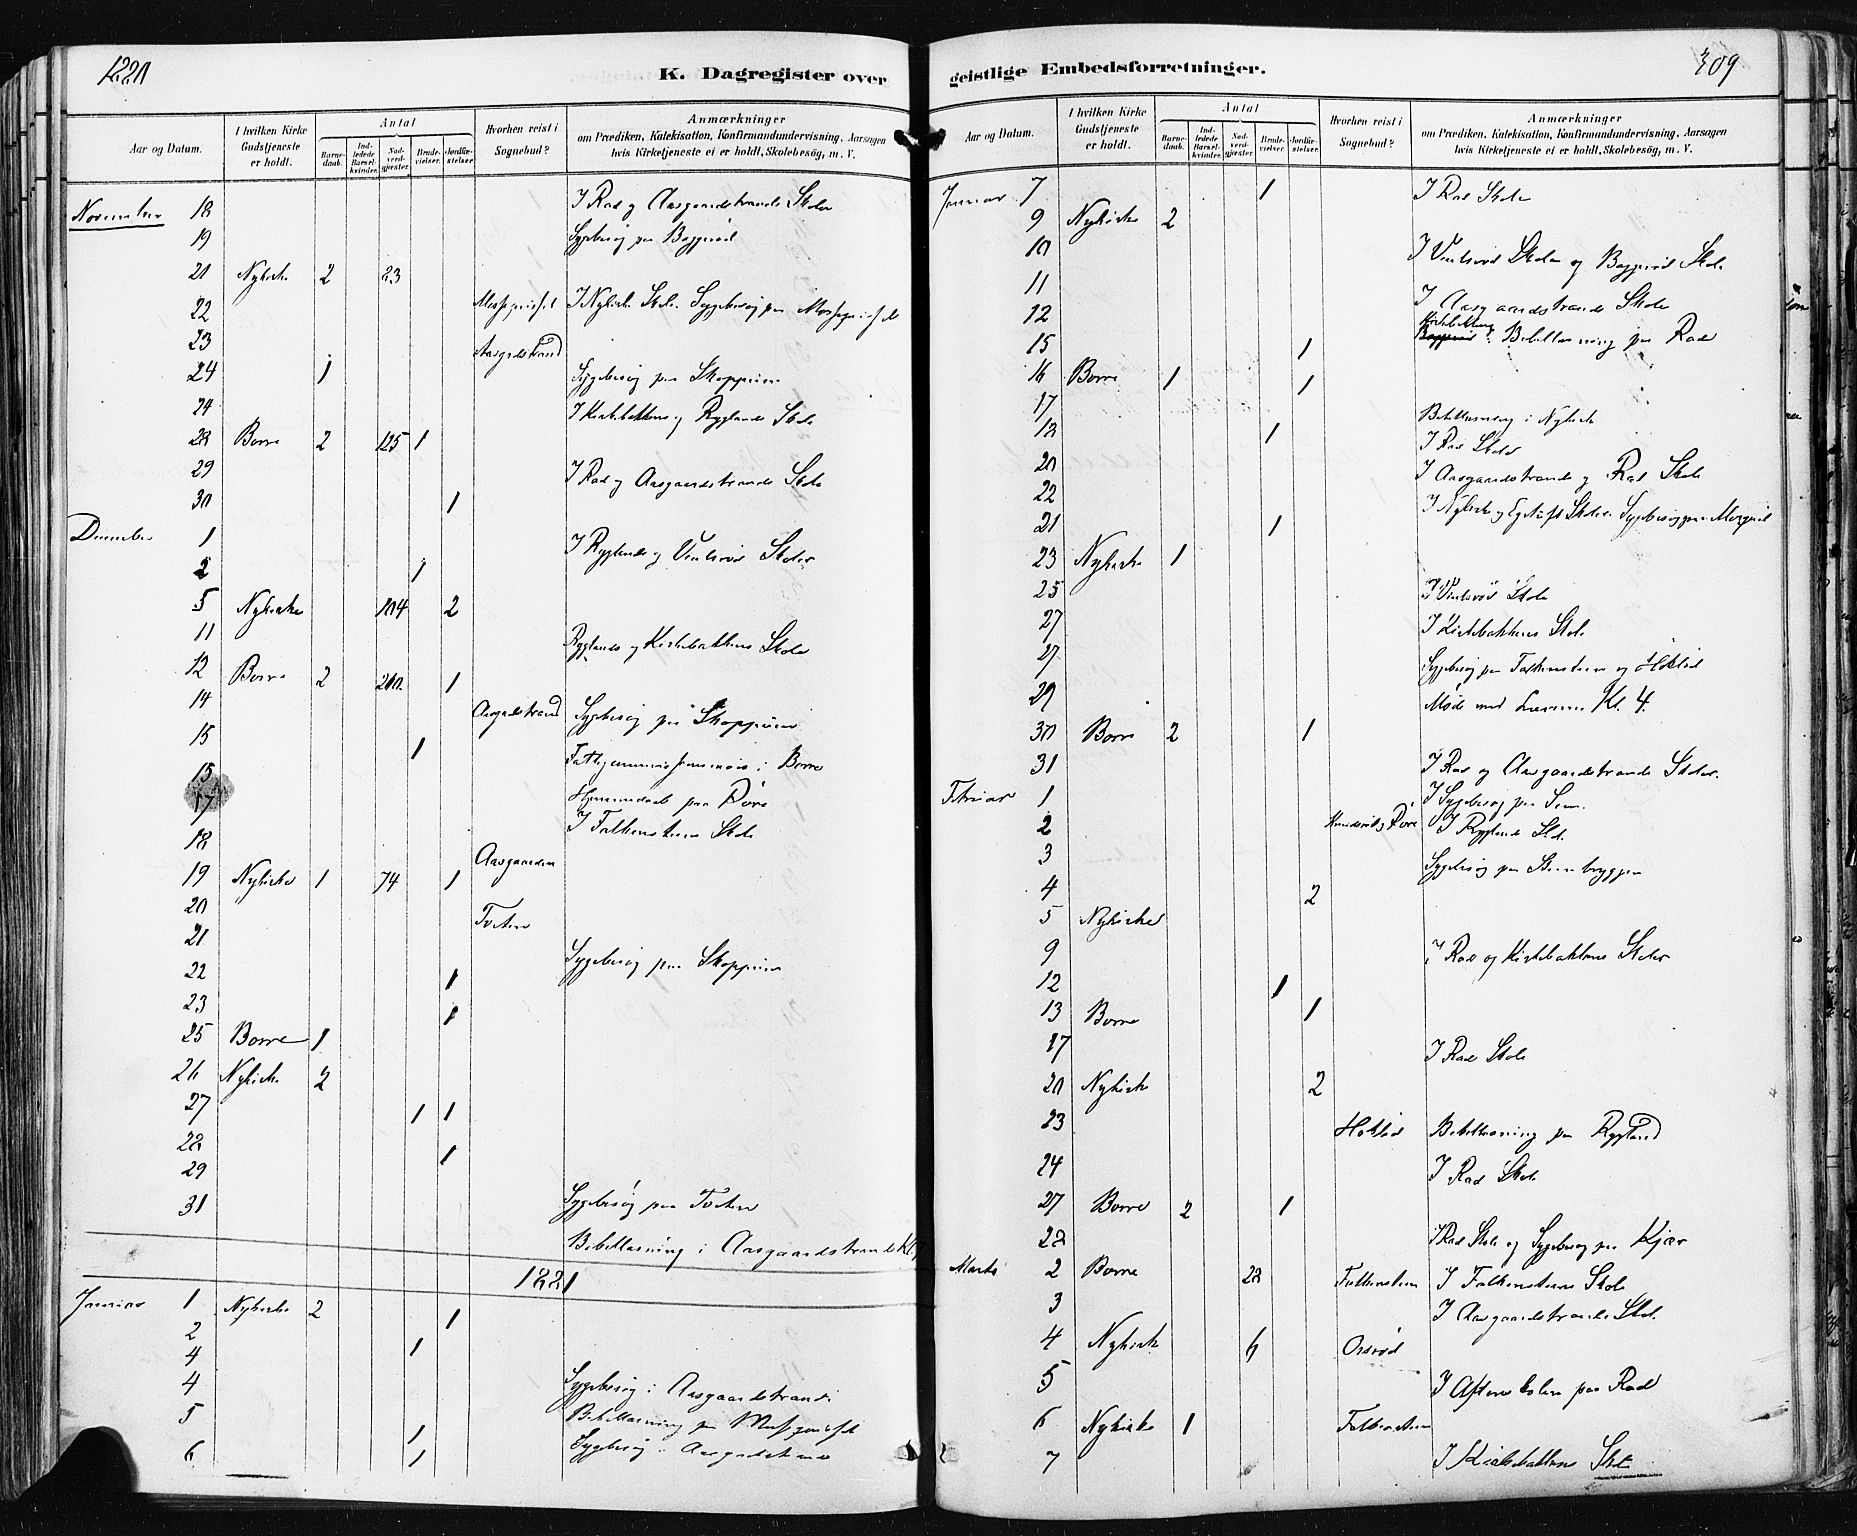 1880
K. Dagregister over
Aar og Datum.
I hvilken Kirke Gudstjeneste er holdt.
Antal
Barnedaab.
Indledede Barselkvinder.
Nadverdgjester.
Brudevielser.
Jordfæstelser.
Hvorhen reist i Sognebud?
Anmærkninger
om Prædiken, Katekisation, Konfirmandundervisning, Aarsagen hvis Kirketjeneste ei er holdt, Skolebesøg, m. V.
November 18 I Rad og Aasgaardstrands Skoler
19 Sygebesøg paa Baggerød
21 Nykirke 2 23
22 I Nykirke Skole. Sygebesøg paa
23 Aasgdstrand
24 1 Sygebesøg paa Skoppum
24 I Kirkebakkens og Ryglands Skole
28 Borre 2 125 1
29 I Rad og Aasgaardstrands Skole
30 1
December 1 I Ryglands og Skoler
2 1
5 Nykirke 104 2
11 Ryglands og Kirkebakkens Skole
12 Borre 2 210 1
14 Aasgadstrand Sygebesøg paa Skoppum
15 1
15 i Borre
17 paa Døre
18 I Falkensteens Skole
19 Nykirke 1 74 1 Aasgaarden
20
21 Tveten
22 Sygebesøg paa Skoppum
23 1
25 Borre 1
26 Nykirke 2
27 1 1
28
29 1
31 Sygebesøg paa Tveten
Bibellæsning i Aasgaardstrand Kl.
1881
Januar 1 Nykirke 2
2 1
4 1
4 Sygebesøg i Aasgaardstrand
5 1 Bibellæsning paa
6 1 Sygebesøg i Aasgadstrand
geistlige Embedsforretninger.
309
Aar og Datum.
I hvilken Kirke Gudstjeneste er holdt.
Antal
Barnedaab.
Indledede Barselkvinder.
Nadverdgjester.
Brudevielser.
Jordfæstelser.
Hvorhen reist i Sognebud?
Anmærkninger
om Prædiken, Katekisation, Konfirmandundervisning, Aarsagen hvis Kirketjeneste ei er holdt, Skolebesøg, m. V.
Januar 7 1 I Rad Skole
9 Nykirke 2
10 I Skole og Baggerød Skole
11
12 I Aasgaardstrands Skole
15 1 Bibellæsning paa Rad
16 Borre 1 1
17
18 1 Bibellæsning i Nykirke
20 I Rad Skole
22 I Aasgaardstrands og Rad Skole
21 1 I Nykirke og Skoler. Sygebesøg paa
23 Nykirke 1
25 I Skole
27 I Kirkebakkens Skole
27 Sygebesøg paa Falkensteen og
29 Møde med Lærerne Kl. 4.
30 Borre 2 1
31 I Rad og Aasgaardstrands Skoler.
Februar 1 Sygebesøg paa Sem.
2 I Ryglands Skole
3 Sygebesøg paa Steenbryggen
4 2
5 Nykirke
9 I Rad og Kirkebakkens Skoler
12 1
13 Borre 1
17 I Rad Skole
20 Nykirke 2
23 Bibellæsning paa Rygland
24 I Rad Skole
27 Borre 2 1
28 I Rad Skole og Sygebesøg paa Kjær
Marts 2 Borre 28 Falkensteen I Falkensteens Skole
3 I Aasgaardstrands Skole
4 Nykirke 6 Orerød
5 I Aftenskolen paa Rad
6 Nykirke 1 Falkensteen
7 I Kirkebakkens Skole